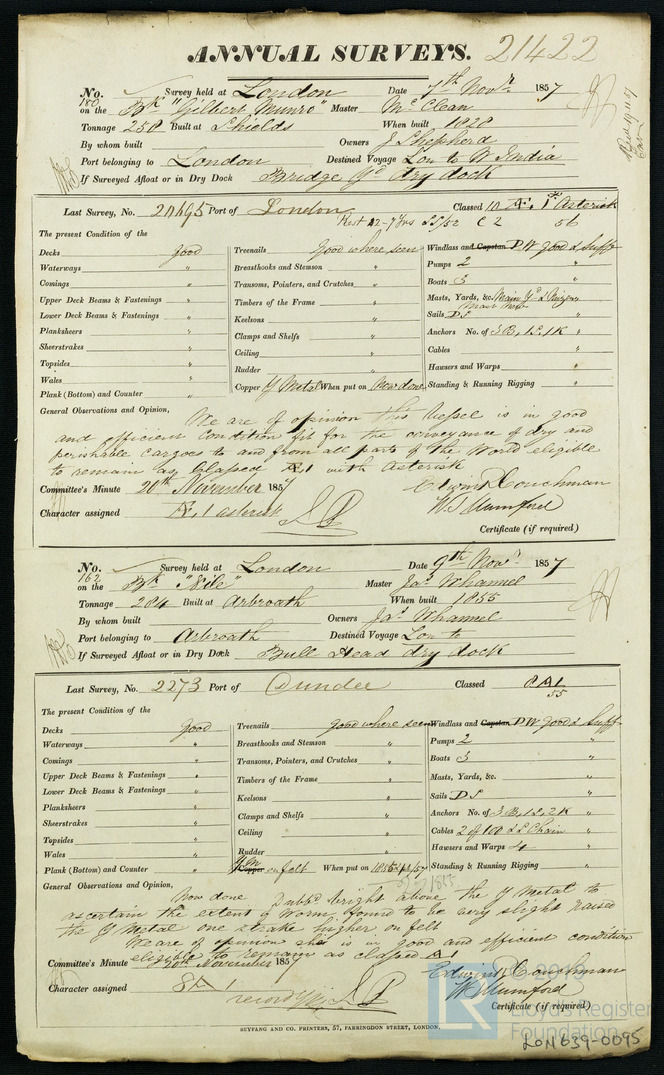 ANNUAL SURVEYS. 21422
No. 180 Survey held at London Date 7th Novr 1857
on the Bk "Gilbert Munro" Master McClean
Tonnage 250 Built at Shields When built 1828
By whom built Owners J Shepherd
Port belonging to London Destined Voyage Lon to W India
If Surveyed Afloat or in Dry Dock Bridge Yd dry dock
Last Survey, No. Port of London Classed 10 Æ 1st Asterisk
Rest 42-7 Yrs SS/52 C 2 56
The present Condition of the
Decks good Treenails Good where seen Windlass and Capstan P W good & Suff
Waterways " Breasthooks and Stemson " Pumps 2 "
Comings " Transoms, Pointers, and Crutches " Boats 3 "
Upper Deck Beams & Fastenings " Timbers of the Frame " Masts, Yards, &c. Main Yd
Lower Deck Beams & Fastenings " Keelsons " Sails D S "
Planksheers " Clamps and Shelfs " Anchors No. of 3 B, 1 S, 1 K "
Sheerstrakes " Ceiling " Cables "
Topsides " Rudder " Hawsers and Warps "
Wales " Copper Y Metal When put on Now done Standing & Running Rigging "
Plank (Bottom) and Counter "
General Observations and Opinion, We are of opinion this Vessel is in good
and efficient Condition fit for the conveyance of dry and
perishable cargoes to and from all parts of the World eligible
to remain as Classed Æ 1 with asterisk
Committee's Minute 20th November 1857 Edwin Couchman
Character assigned Æ 1 asterisk W. J. Mumford
Certificate (if required)
No. 162 Survey held at London Date 9th Novr 1857
on the Bk "Nile" Master Jas Whannel
Tonnage 284 Built at Arbroath When built 1855
By whom built Owners Jas Whannel
Port belonging to Arbroath Destined Voyage Lon to
If Surveyed Afloat or in Dry Dock Bull Head dry dock
Last Survey, No. 2273 Port of Dundee Classed 8 A 1
55
The present Condition of the
Decks good Treenails good where seen Windlass and Capstan P W good & Suff
Waterways " Breasthooks and Stemson " Pumps 2 "
Comings " Transoms, Pointers, and Crutches " Boats 3 "
Upper Deck Beams & Fastenings " Timbers of the Frame " Masts, Yards, &c. "
Lower Deck Beams & Fastenings " Keelsons " Sails D S "
Planksheers " Clamps and Shelfs " Anchors No. of 3 B, 1 S, 2 K "
Sheerstrakes " Ceiling " Cables 2 of 100 Chain "
Topsides " Rudder " Hawsers and Warps 4 "
Wales " Copper Y M on felt When put on Standing & Running Rigging "
Plank (Bottom) and Counter "
General Observations and Opinion,
Now done bright above the Y Metal to
ascertain the extent of Worm, found to be very slight raised
the Y Metal one strake higher, on felt
We are of opinion she is in good and efficient condition
eligible to remain as classed A 1
Committee's Minute 20th November 1857 Edwin Couchman
Character assigned 8 A 1 W J Mumford
Certificate (if required)
SEYFANG AND CO. PRINTERS, 57, FARRINGDON STREET, LONDON.
LR
Lloyd's Register
Foundation
LON639-0095